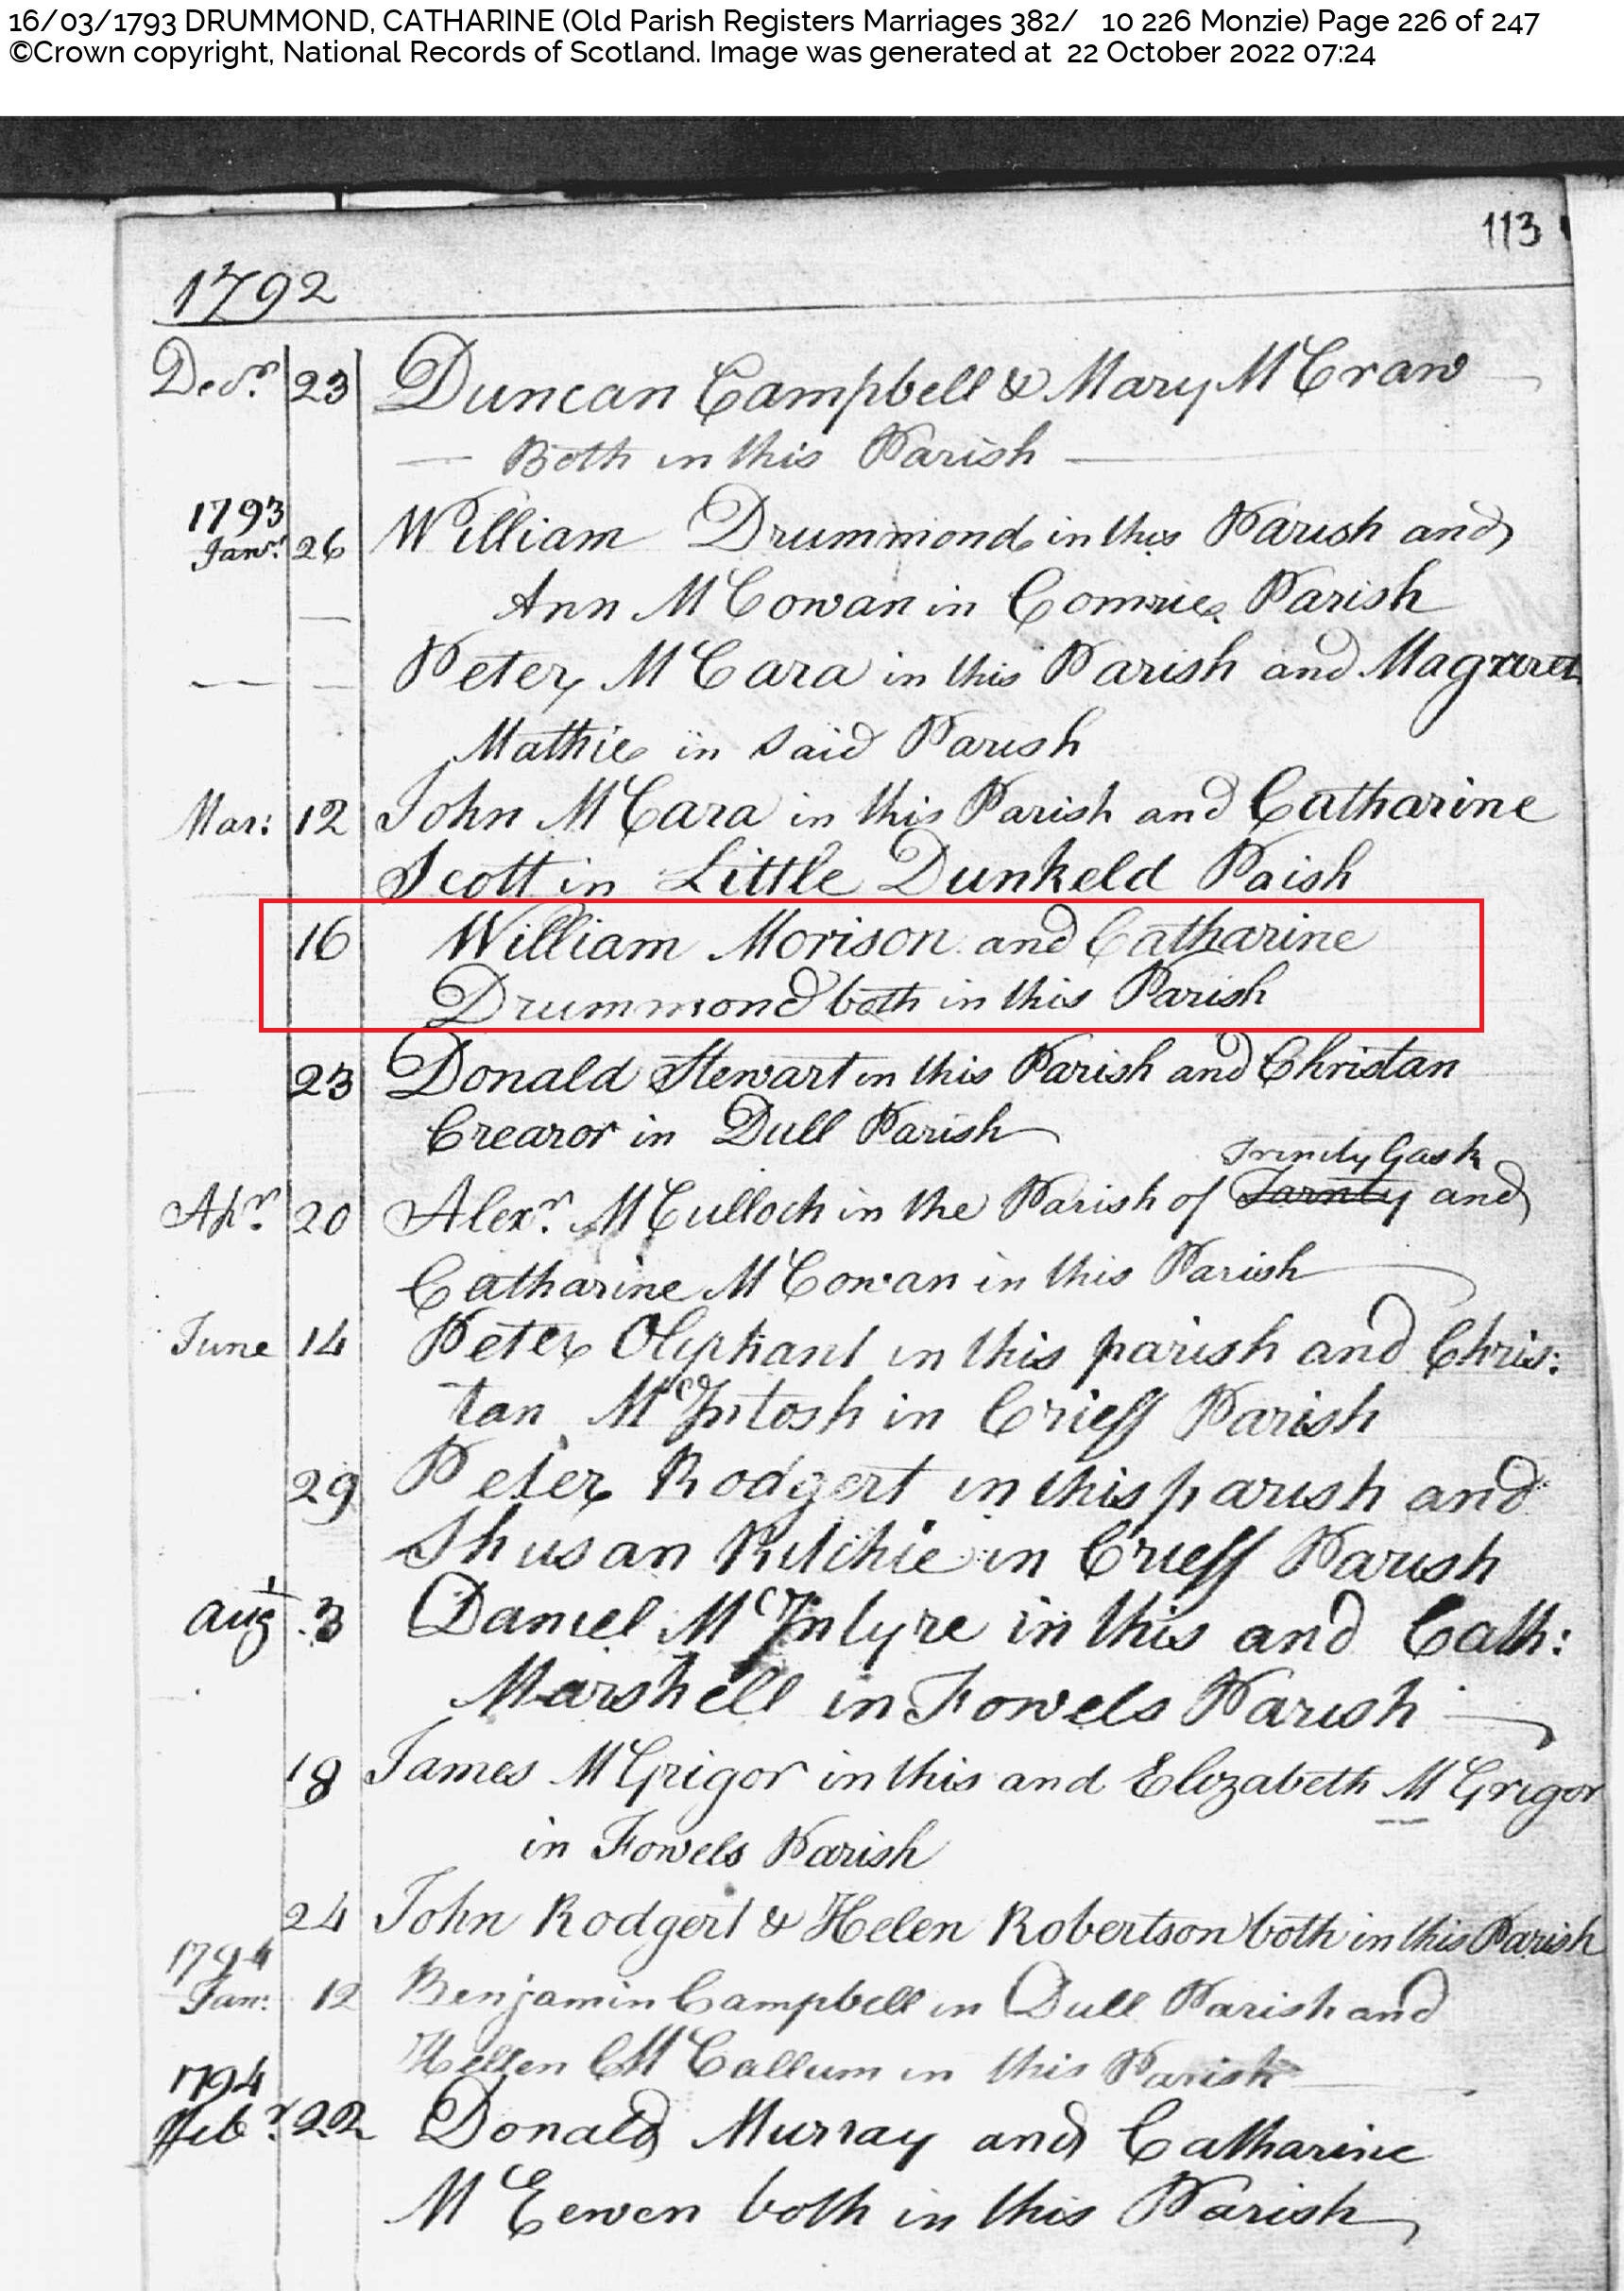 16/03/1793 DRUMMOND, CATHARINE (Old Parish Registers Marriages 382/ 10 226 Monzie) Page 226 of 247
©Crown copyright, National Records of Scotland. Image was generated at 22 October 2022 07:24
113
1792
Decr. 23 Duncan Campbell & Mary McCraw
Both in this Parish
1793
Janr. 26 William Drummond in this Parish and
Ann McCowan in Comrie Parish
Peter McCara in this Parish and Magreret
Mathie in Said Parish
Mar: 12 John McCara in this Parish and Catharine
Scott in Little Dunkeld Paish
16 William Morison and Catharine
Drummond both in this Parish
23 Donald Stewart in this Parish and Christan
Crearor in Dull Parish
Trinity Gask
Apr. 20 Alexr. McCulloch in the Parish of Tarnty and
Catharine McCowan in this Parish
June 14 Peter Oliphant in this parish and Chris:
tan McIntosh in Crieff Parish
29 Peter Rodgert in this parish and
Shusan Ritchie in Crieff Parish
Aug 3 Daniel McIntyre in this and Cath:
Marshell in Fowels Parish
18 James McGrigor in this and Elizabeth McGrigor
in Fowels Parish
24 John Rodgert & Helen Robertson both in this Parish
1794
Jan: 12 Benjamin Campbell in Dull Parish and
Hellen McCallum in this Parish
1794
Febr. 22 Donald Murray and Catharine
McEewen both in this Parish